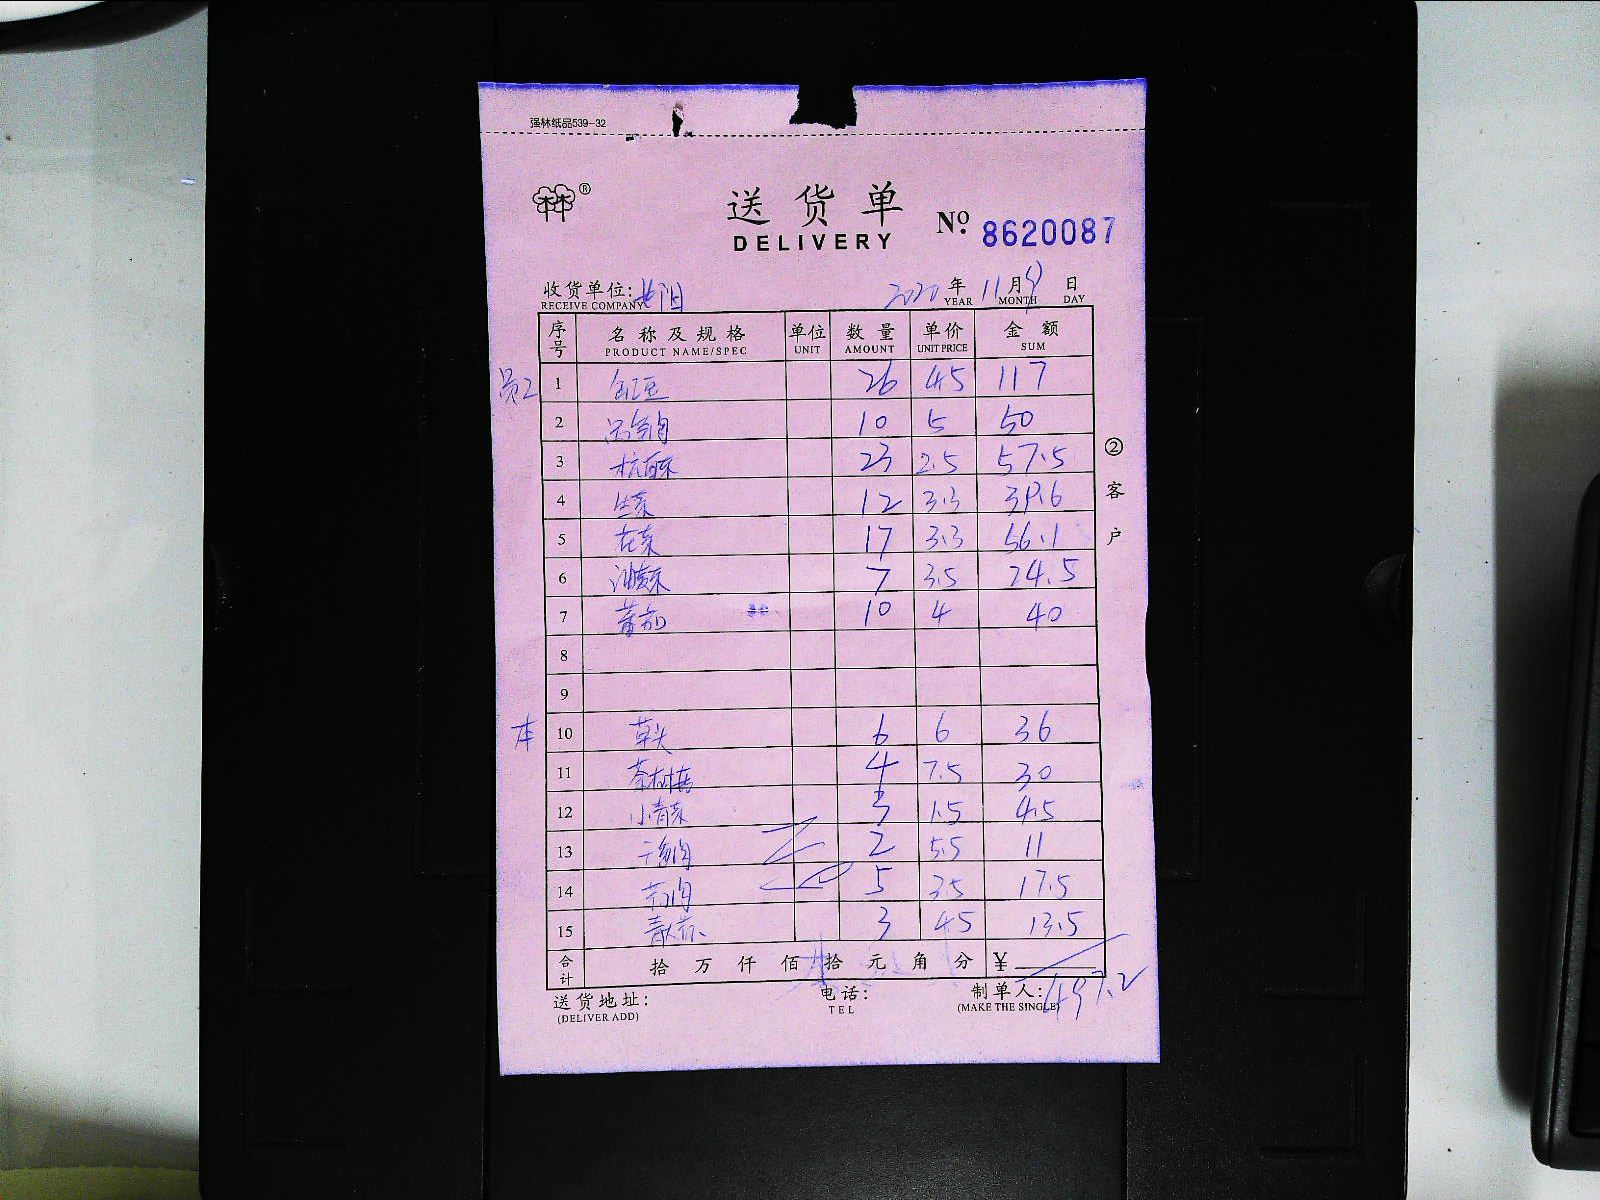 强林纸品539-32
送货单
DELIVERY
No. 8620087
收货单位: 2020年11月9日
RECEIVE COMPANY YEAR MONTH DAY
序号 名称及规格 单位 数量 单价 金额
PRODUCT NAME/SPEC UNIT AMOUNT UNIT PRICE SUM
员工 1 豇豆 26 4.5 117
2 10 5 50
3 23 2.5 57.5
4 生菜 12 3.3 39.6
5 花菜 17 3.3 56.1
6 7 3.5 24.5
7 蕃茄 10 4 40
8
9
本 10 草头 6 6 36
11 茶树菇 4 7.5 30
12 小青菜 3 1.5 4.5
13 2 5.5 11
14 5 3.5 17.5
15 3 4.5 13.5
合计 拾 万 仟 佰 拾 元 角 分 ¥ 497.2
送货地址: 电话: 制单人:
(DELIVER ADD) TEL (MAKE THE SINGLE)
②客户